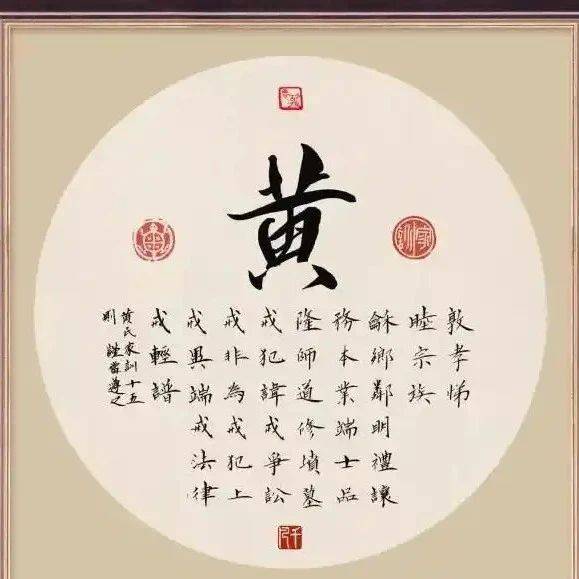 黄
敦孝悌
睦宗族
龢鄉鄰明禮讓
務本業端士品
隆師道修墳墓
戒犯諱戒爭訟
戒非為戒犯上
戒異端戒法律
戒輕譜
黄氏家訓十五
則 謹當遵之